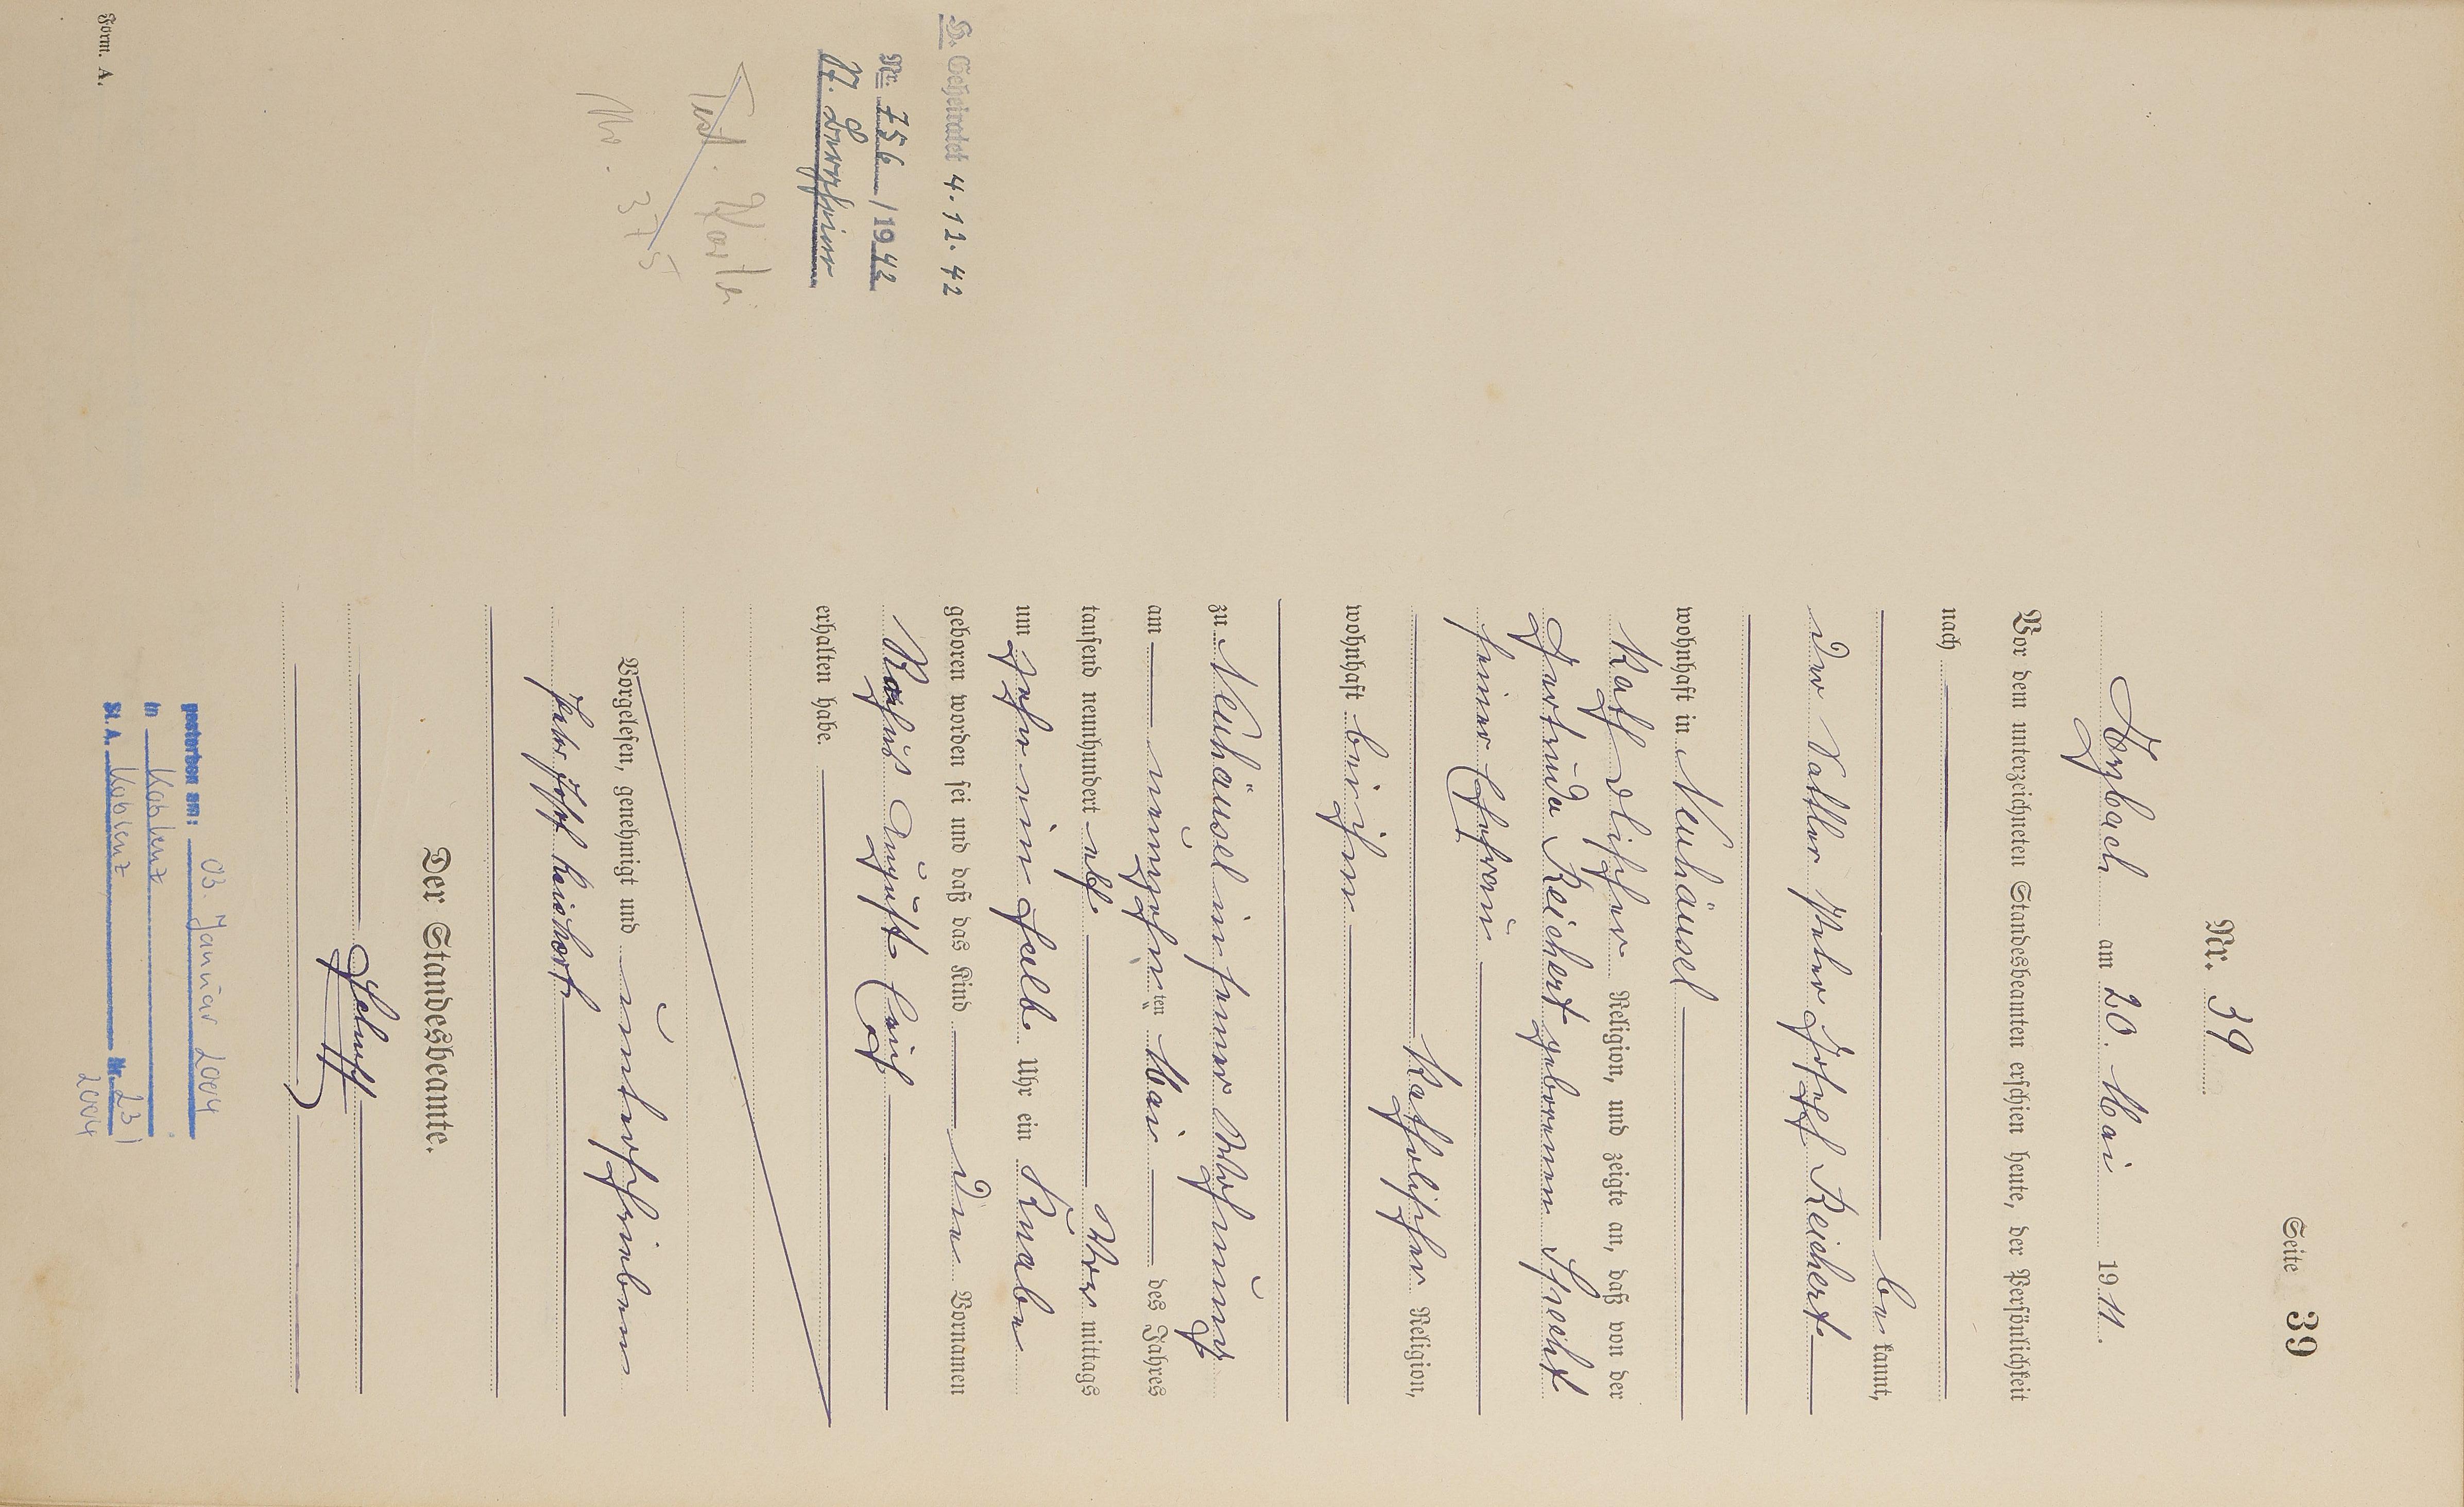 Seite 39
Nr. 39
Arzbach am 20. Mai 1911.
Vor dem unterzeichneten Standesbeamten erschien heute, der Persönlichkeit
nach
be kannt,
der Vater Peter Josef Reichert
wohnhaft in Neuhäusel
katholischer Religion, und zeigte an, daß von der
Gertruda Reichert geborenen Specht
seiner Ehefrau
katholischer Religion,
wohnhaft bei ihm
zu Neuhäusel in seiner Wohnung
am neunzehnten Mai des Jahres
tausend neunhundert elf Vor mittags
um zehn ein halb Uhr ein Knabe
geboren worden sei und daß das Kind den Vornamen
August
erhalten habe.
Vorgelesen, genehmigt und unterschrieben
Peter Josef Reichert
Der Standesbeamte.
gestorben am: 03. Januar 2004
in Koblenz
St. A. Koblenz Nr. 23/
2004
H. Geheiratet 4.11.42
Nr. 756 / 1942
Nr. 375
Form. A.